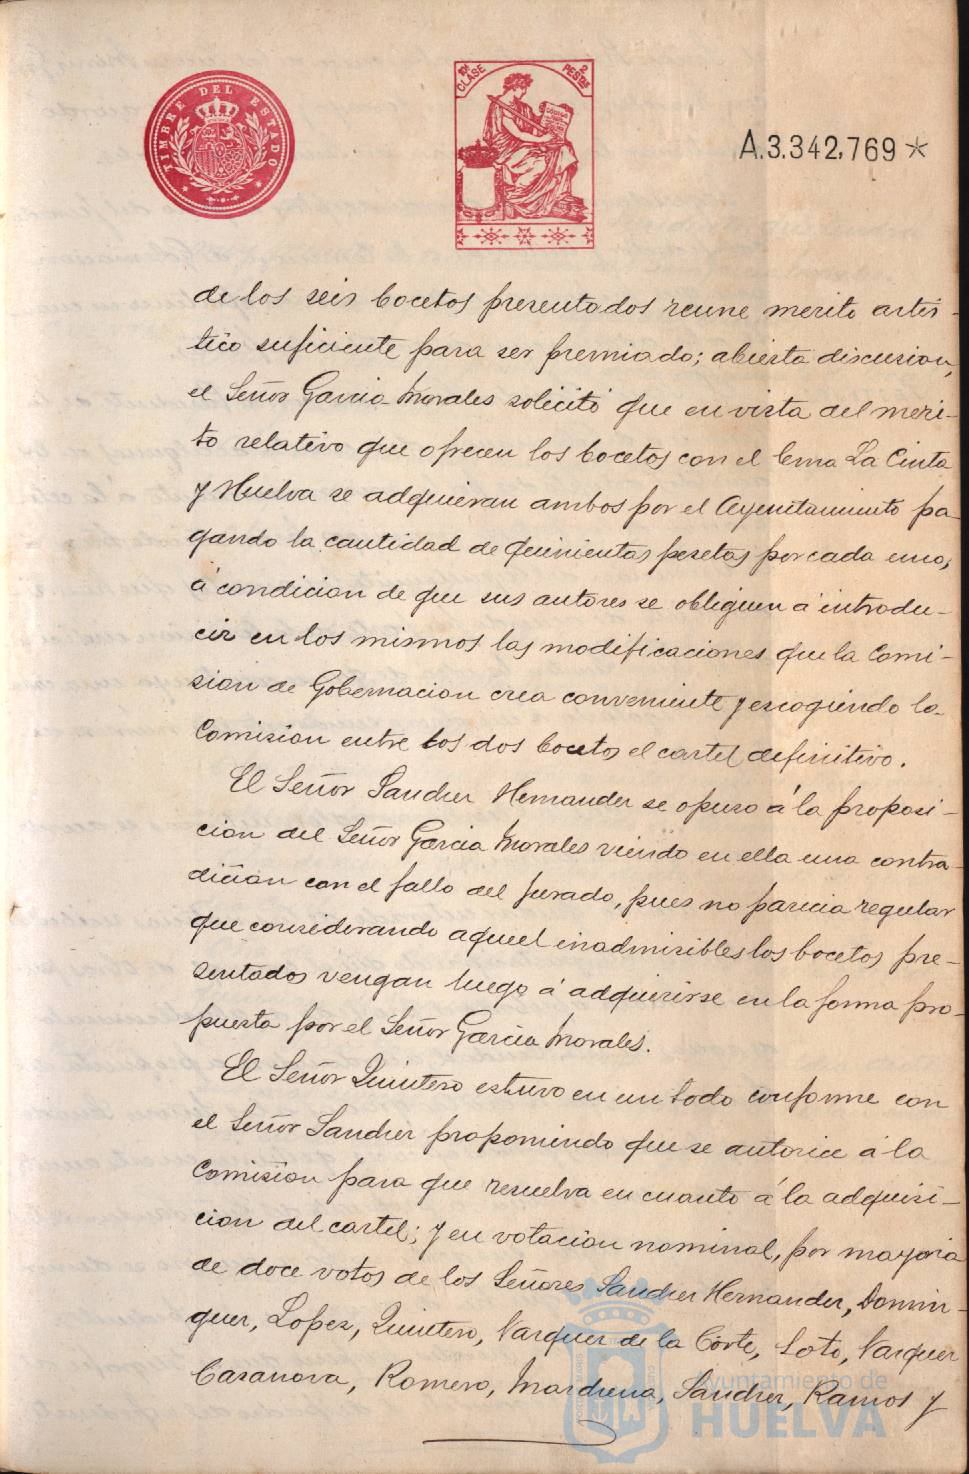 TIMBRE DEL ESTADO
10ª CLASE
2 PESTAS
A.3.342.769 *
de los seis bocetos presentados reune merito artis-
tico suficiente para ser premiado; abierta discusion,
el Señor Garcia Morales solicitó que en vista del meri-
to relativo que ofrecen los bocetos con el lema La Cinta
y Huelva se adquieran ambos por el Ayuntamiento pa-
gando la cantidad de quinientas pesetas por cada uno,
á condicion de que sus autores se obliguen á introdu-
cir en los mismos las modificaciones que la Comi-
sion de Gobernacion crea conveniente y escogiendo la
Comision entre los dos bocetos el cartel definitivo.
El Señor Sanchez Hernandez se opuso á la proposi-
cion del Señor Garcia Morales viendo en ella una contra-
dicion con el fallo del Jurado, pues no parecia regular
que considerando aquel inadmisibles los bocetos pre-
sentados vengan luego á adquirirse en la forma pro-
puesta por el Señor Garcia Morales.
El Señor Quintero estuvo en un todo conforme con
el Señor Sanchez proponiendo que se autorice á la
Comision para que resuelva en cuanto á la adquisi-
cion del cartel; y en votacion nominal, por mayoria
de doce votos de los Señores Sanchez Hernandez, Domin-
guez, Lopez, Quintero, Vazquez de la Corte, Soto, Vazquez
Casanova, Romero, Marchena, Sanchez, Ramos y
Ayuntamiento de
HUELVA